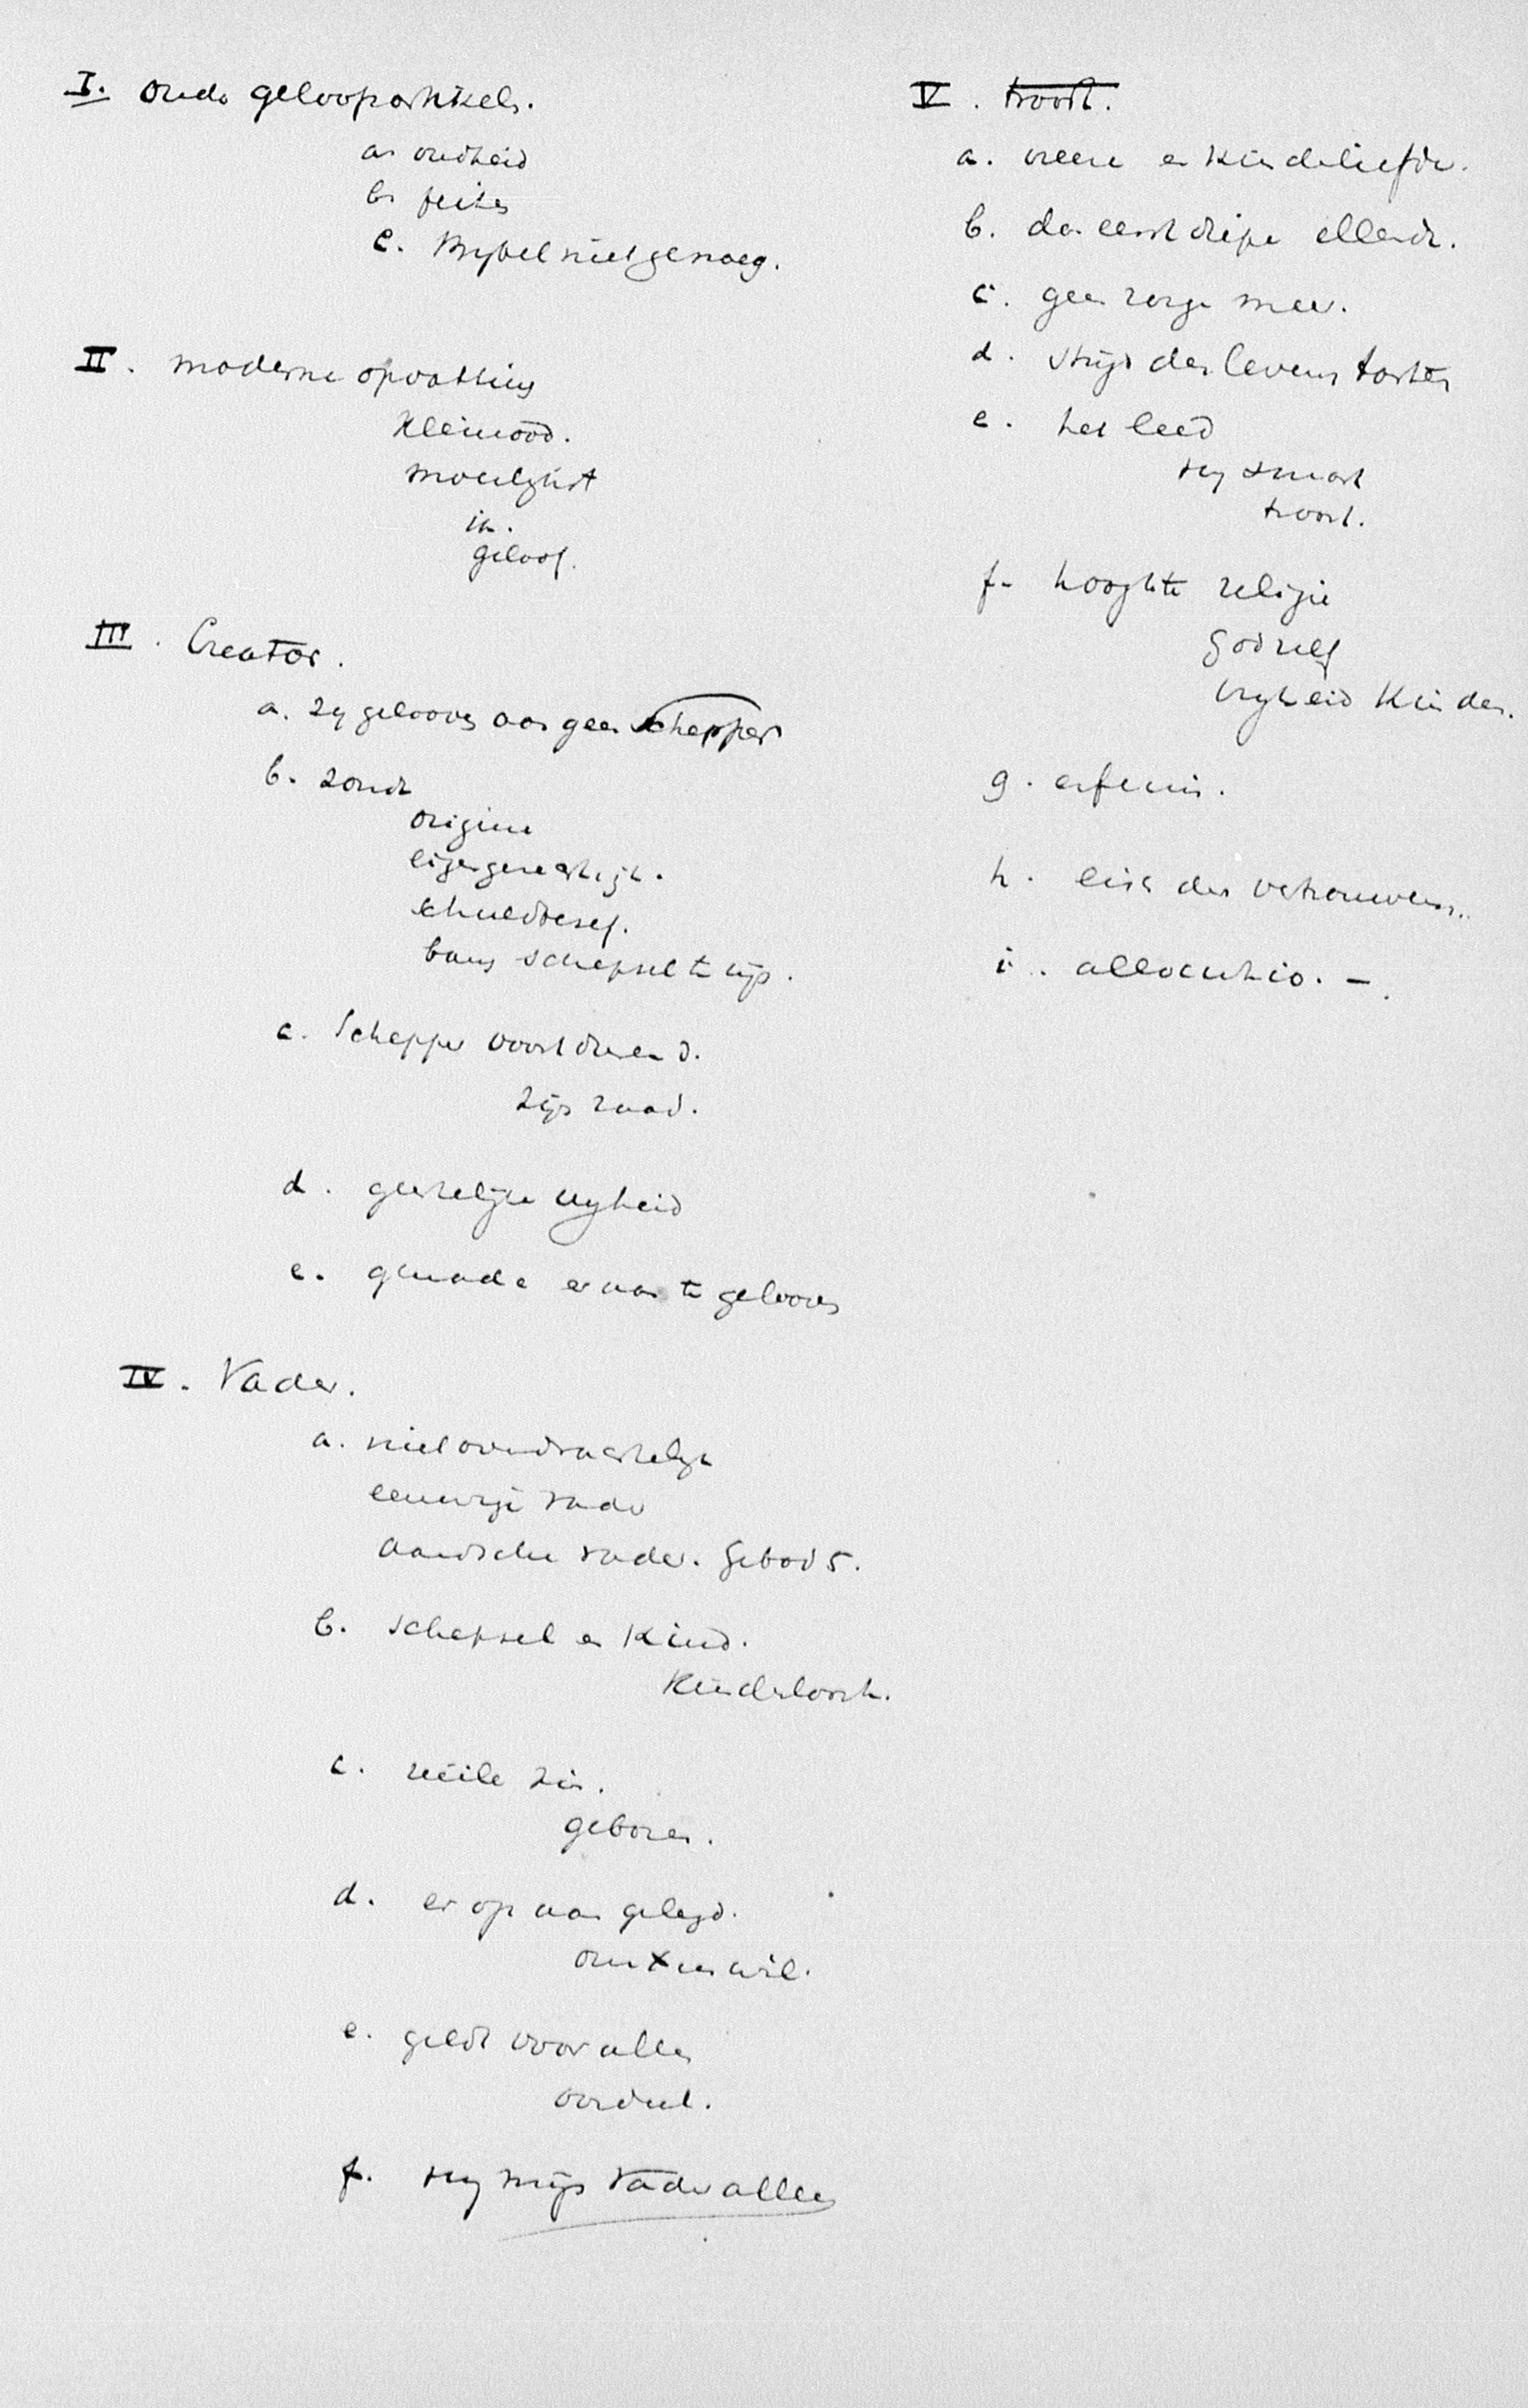 I. Oude geloofsartikelen.
a. oudheid
b. feiten
c. Bijbel niet genoeg.
II. moderne opvatting
Kleinood.
moeilijkst
in.
geloof.
III. Creator.
a. zij gelooven aan geen schepper
b. zonde
origine
eigengerechtigh.
schuldbesef.
bang schepsel te zijn.
c. Schepper voortdurend.
Zijn raad.
d. geestelijke vrijheid
e. genade eraan te gelooven
IV. Vader.
a. niet overdrachtelijk
eeuwige Vader
aardsche vader. Gebod 5.
b. schepsel en Kind.
Kinderloosh.
c. reëele zin.
geboren.
d. er op aangelegd.
om X us wil.
e. geldt voor allen
oordeel.
f. Hij mijn Vader alleen
V. troost.
a. vreeze en Kinderliefde.
b. dan eerst diepe ellende.
c. geen zorgen meer.
d. strijd des levens tarten
e. het leed
Hij smart
troost.
f. hoogste religie
God zelf
vrijheid Kinderen.
g. erfenis.
h. eisch des vertrouwens.
i. allocutio. -